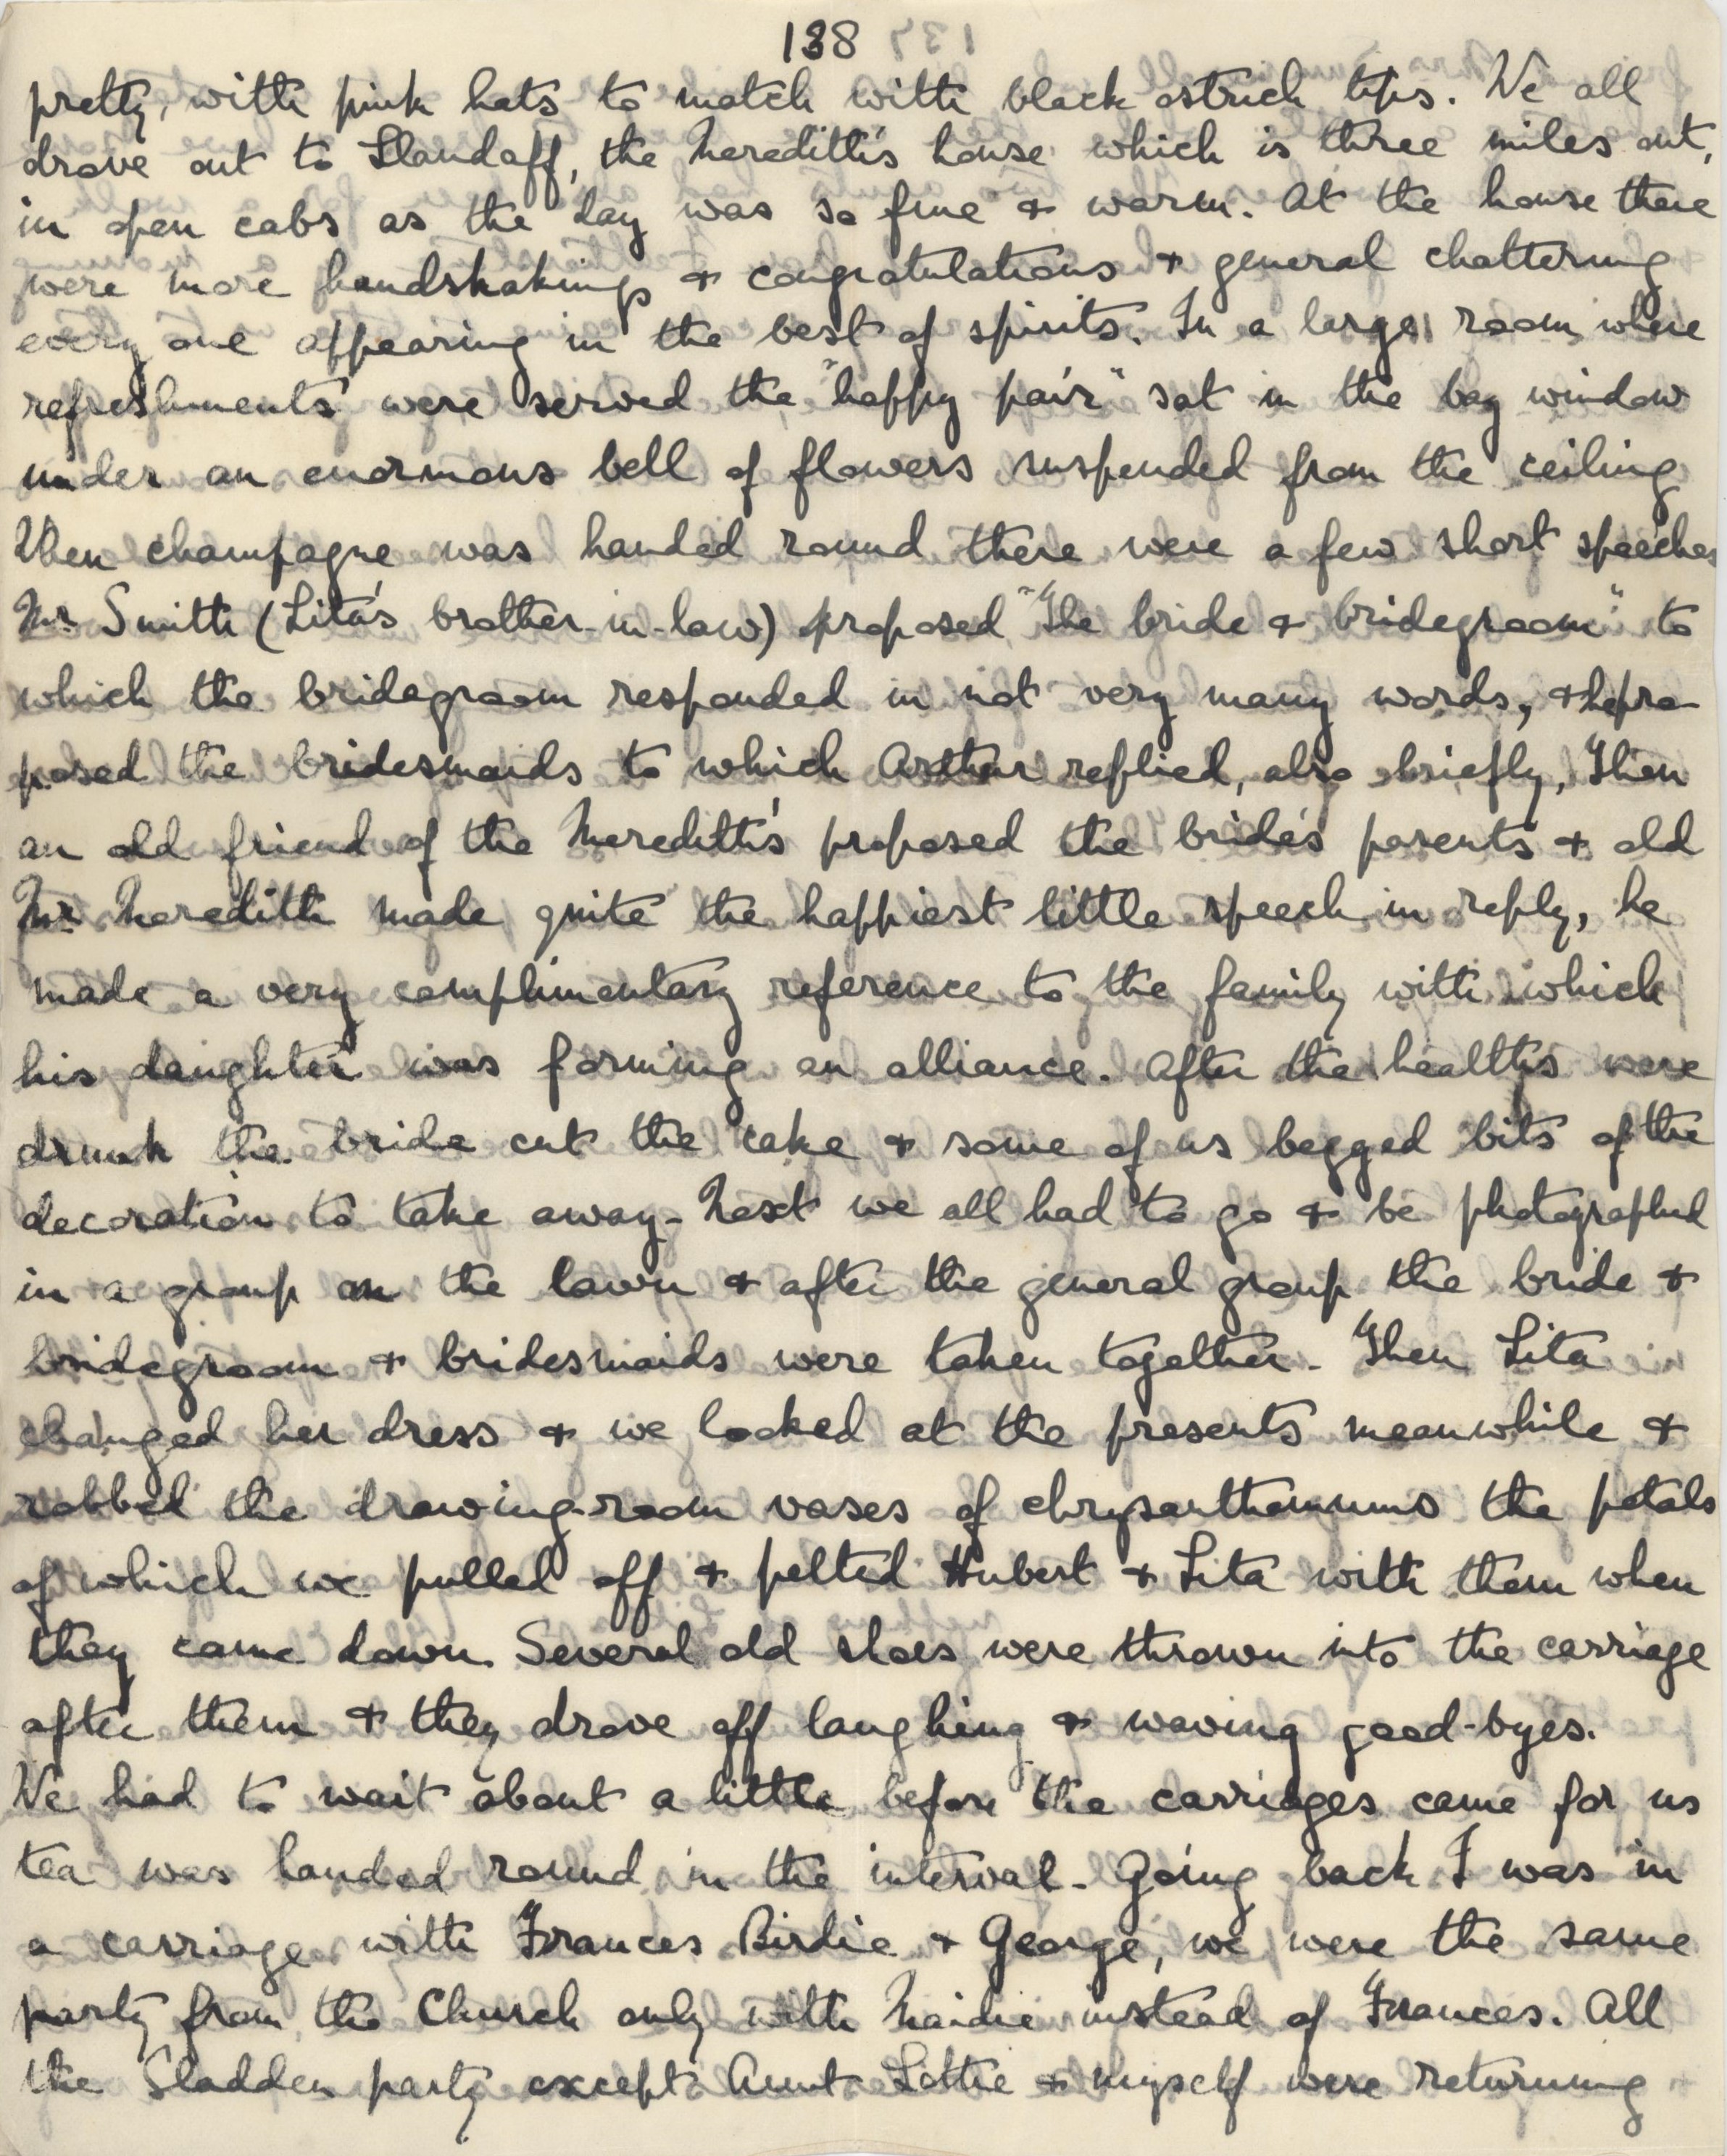 138
pretty, with pink hats to match with black ostrich tips. We all
drove out to Llandaff, the Meredith's house which is three miles out,
in open cabs as the day was so fine & warm. At the house there
were more handshakings & congratulations & general chattering
every one appearing in the best of spirits. In a large room where
refreshments were served the "happy pair" sat in the bay window
under an enormous bell of flowers suspended from the ceiling
When champagne was handed round there were a few short speeches
Mr. Smith (Lita's brother-in-law) proposed "The bride & bridegroom" to
which the bridegroom responded in not very many words, & he pro-
posed the bridesmaids to which Arthur replied, also briefly, Then
an old friend of the Meredith's proposed the bride's parents & old
Mr. Meredith made quite the happiest little speech in reply, he
made a very complimentary reference to the family with which
his daughter was forming an alliance. After the healths were
drunk the bride cut the cake & some of us begged bits of the
decoration to take away - Next we all had to go & be photographed
in a group on the lawn & after the general group the bride &
bridegroom & bridesmaids were taken together - Then Lita
changed her dress & we looked at the presents meanwhile &
robbed the drawing-room vases of chrysanthemums the petals
of which we pulled off & pelted Hubert & Lita with them when
they came down. Several old shoes were thrown into the carriage
after them & they drove off laughing & waving good-byes.
We had to wait about a little before the carriages came for us
tea was handed round in the interval - Going back I was in
a carriage with Frances Birdie & George, we were the same
party from the Church only with Maidie instead of Frances. All
the Sladden party except Aunt Lottie & myself were returning